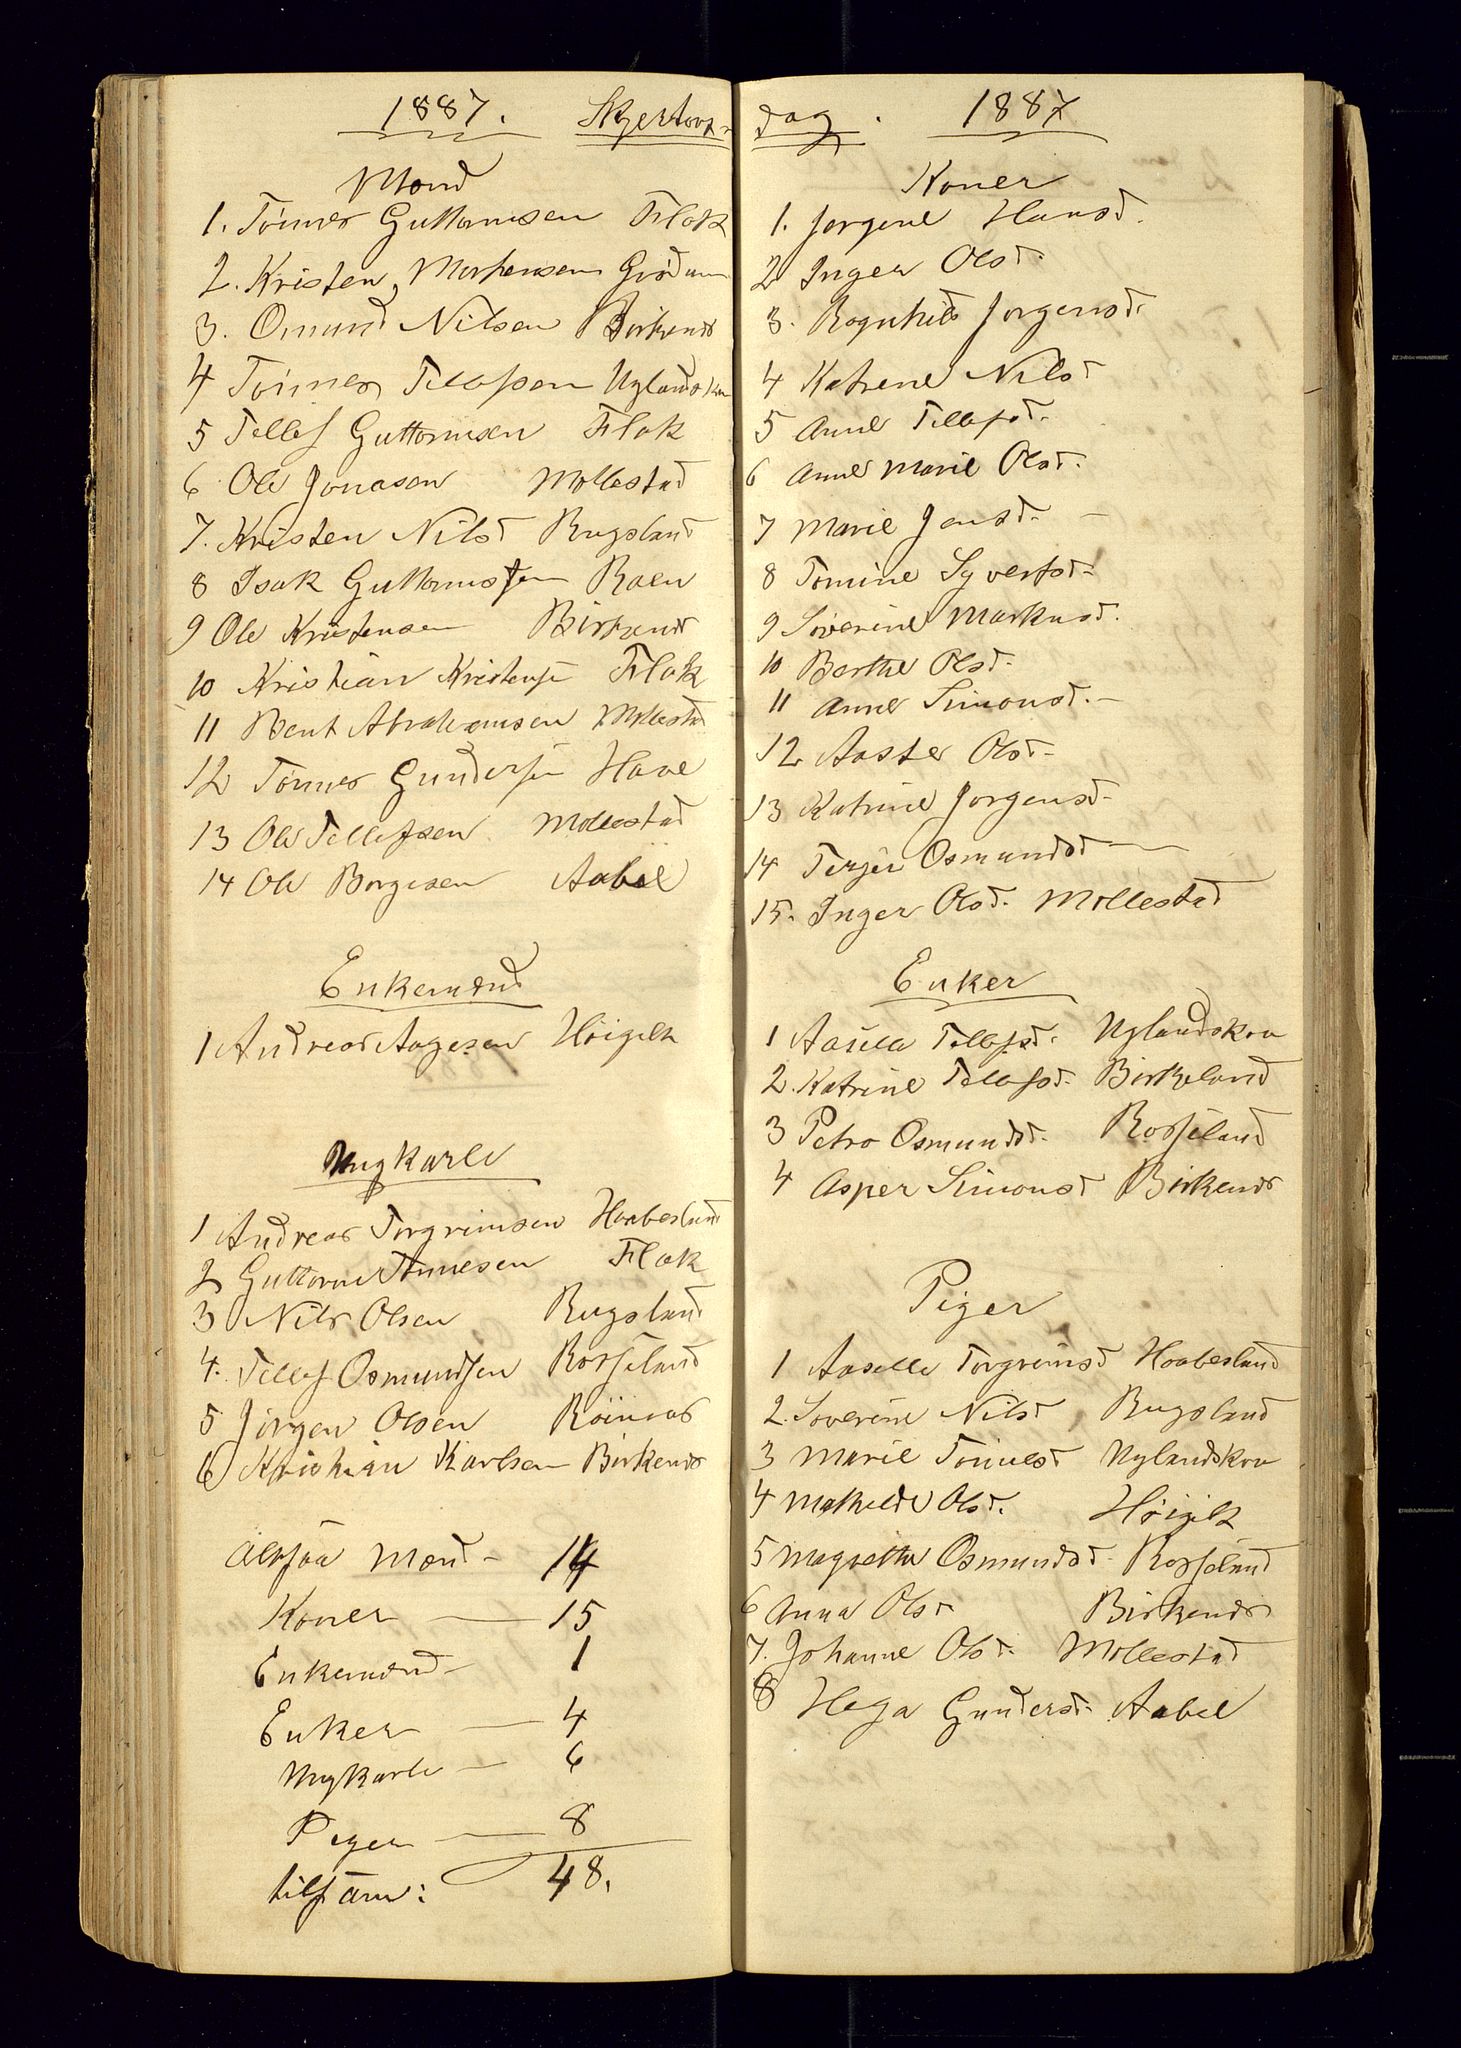 1887. Skjertors-
Mænd
1. Tönnes Guttormsen Flak
2. Kristen Mortensen
3. Omund Nilsen Birkenes
4 Tönnes Tellefsen Uglandskra
5 Tellef Guttormsen Flak
6 Ole Jonasen Mollestad
7. Kristen Nilsd Rugsland
8 Isak Guttormsen Raen
9 Ole Kristensen Birkenes
10 Kristian Kristensen Flak
11 Bent Abrahamsen Mollestad
12 Tönnes Gundersen Have
13 Ole Tellefsen Mollestad
14 Ole Borgesen Aabel
Enkemænd
1 Andreas Aagesen Höigilt
Ungkarle
1 Andreas Torgrimsen Haabesland
2 Guttorm Tönnesen Flak
3 Nils Olsen Rugsland
4. Tellef Osmundsen Rosseland
5 Jörgen Olsen Röinaas
6 Kristian Karlsen Birkenes
Altsaa Mænd - 14
Koner - 15
Enkemænd - 1
Enker - 4
Ungkarle - 6
Piger - 8
tilsam: 48.
dag. 1887
Koner
1. Jorgine Hansd.
2 Inger Olsd.
3. Ragnhild Jorgensd.
4 Katrine Nilsd
5 Anne Tellefsd.
6 Anne Marie Olsd.
7 Marie Jensd. -
8 Tomine Syvertsd-
9 Söverine Markusd.
10 Berthe Olsd.
11 Anne Simonsd. -
12 Aaster Olsd-
13 Katrine Jorgensd-
14 Terjer Osmundsd -
15. Inger Olsd. Mollestad
Enker
1 Aasille Tellefsd. Uglandskra
2. Katrine Tellefsd. Birkeland
3 Petra Osmundsd. Rosseland
4 Asper Simonsd Birkenes
Piger
1 Aaselle Torgrimsd Haabesland
2. Soverine Nilsd Rugsland
3 Marie Tönnesd Uglandskra
4 Mathilde Olsd. Höigilt
5 Magrethe Osmundsd. Rosseland
6 Anna Olsd Birkenes
7. Johanne Olsd. Mollestad
8 Hega Gundersd. Aabel